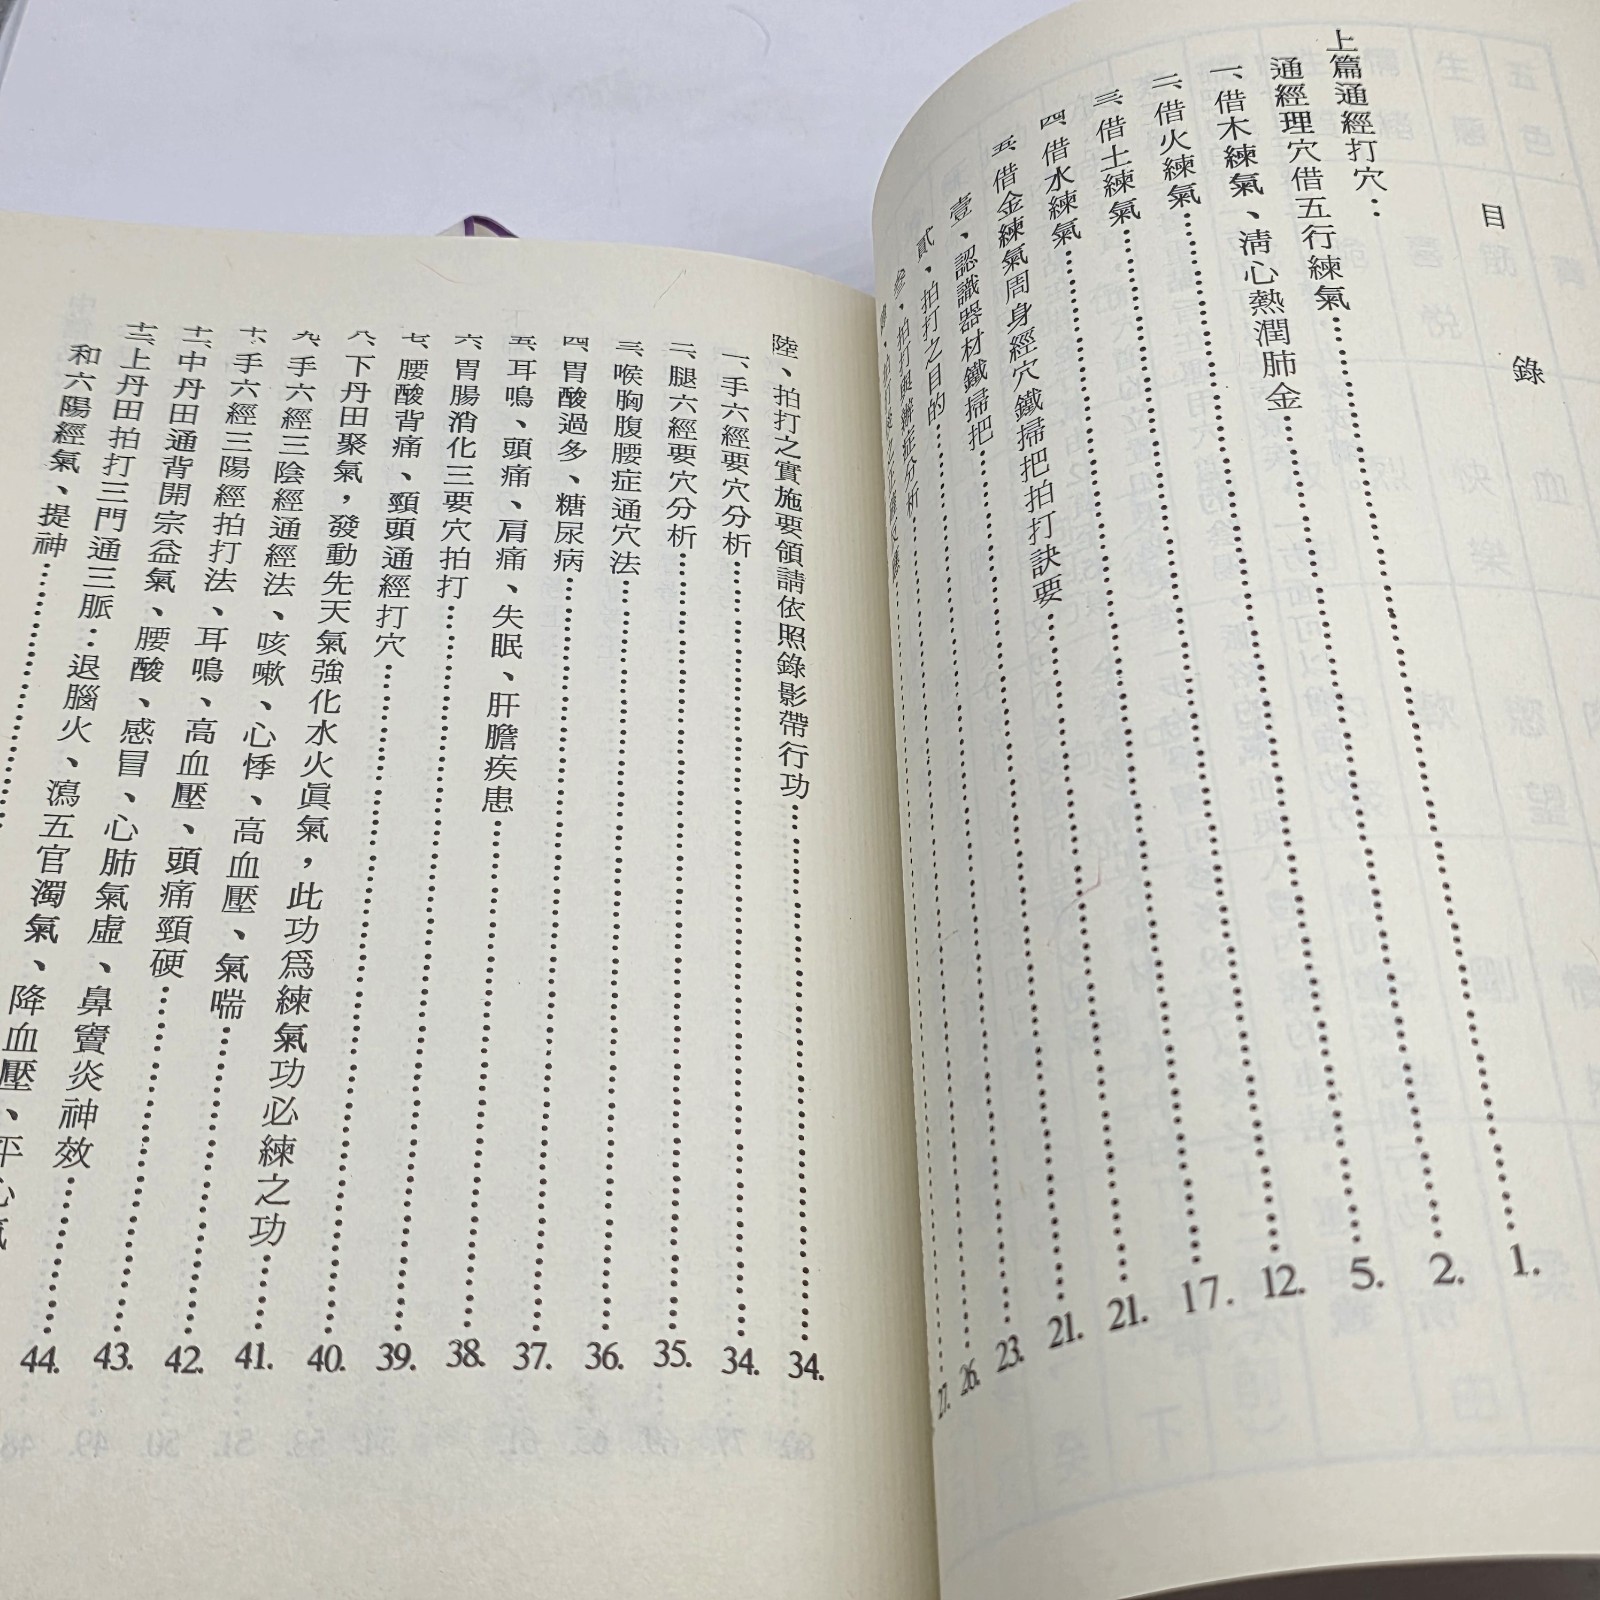 目錄
上篇通經打穴………1.
通經理穴借五行練氣………2.
一、借木練氣、清心熱潤肺金………5.
二、借火練氣………12.
三、借土練氣………17.
四、借水練氣………21.
五、借金練氣周身經穴鐵掃把拍打訣要………21.
壹、認識器材鐵掃把………23.
貳、拍打之目的………26.
參、拍打與辦症分析………27.
陸、拍打之實施要領請依照錄影帶行功………34.
一、手六經要穴分析………34.
二、腿六經要穴分析………35.
三、喉胸腹腰症通穴法………36.
四、胃酸過多、糖尿病………37.
五、耳鳴、頭痛、肩痛、失眠、肝膽疾患………38.
六、胃腸消化三要穴拍打………39.
七、腰酸背痛、頸頭通經打穴………40.
八、下丹田聚氣，發動先天氣強化水火眞氣，此功爲練氣功必練之功………41.
九、手六經三陰經通經法、咳嗽、心悸、高血壓、氣喘………42.
十、手六經三陽經拍打法、耳鳴、高血壓、頭痛頸硬………43.
十一、中丹田通背開宗益氣、腰酸、感冒、心肺氣虛、鼻竇炎神效………44.
十二、上丹田拍打三門通三脈…退腦火、瀉五官濁氣、降血壓、平心氣
和六陽經氣、提神………